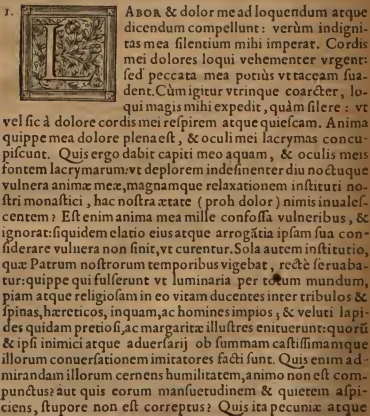 1. LABOR & dolor me ad loquendum atque
dicendum compellunt: verùm indigni-
tas mea silentium mihi imperat. Cordis
mei dolores loqui vehementer vrgent:
sed peccata mea potiùs vt taceam sua-
dent. Cùm igitur vtrinque coarcter, lo-
qui magis mihi expedit, quàm silere: vt
vel sic à dolore cordis mei respirem atque quiescam. Anima
quippe mea dolore plena est, & oculi mei lacrymas concu-
piscunt. Quis ergo dabit capiti meo aquam, & oculis meis
fontem lacrymarum: vt deplorem indesinenter diu noctuque
vulnera animæ meæ, magnamque relaxationem instituti no-
stri monastici, hac nostra ætate (proh dolor) nimis inuales-
centem? Est enim anima mea mille confossa vulneribus, &
ignorat: siquidem elatio eius atque arrogãtia ipsam sua con-
siderare vulnera non sinit, vt curentur. Sola autem institutio,
quæ Patrum nostrorum temporibus vigebat, rectè seruaba-
tur: quippe qui fulserunt vt luminaria per totum mundum,
piam atque religiosam in eo vitam ducentes inter tribulos &
spinas, hæreticos, inquam, ac homines impios, & veluti lapi-
des quidam pretiosi, ac margaritæ illustres enituerunt: quorũ
& ipsi inimici atque aduersarij ob summam castissimamque
illorum conuersationem imitatores facti sunt. Quis enim ad-
mirandam illorum cernens humilitatem, animo non est com-
punctus? aut quis eorum mansuetudinem & quietem aspi-
ciens, stupore non est correptus? Quis ita pecuniæ atque